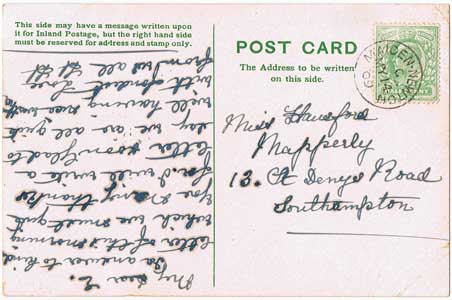 This side may have a message written upon
it for Inland Postage, but the right hand side
must be reserved for address and stamp only.
POST CARD
The Address to be written
on this side.
Miss
Mapperly
13. St Denys Road
Southampton
My dear E.
In answer to kind
letter of this morning
which we must
You many thanks
for. I will write a
letter soon glad to
say we are all quite
well having nice
with fondest love
from all at